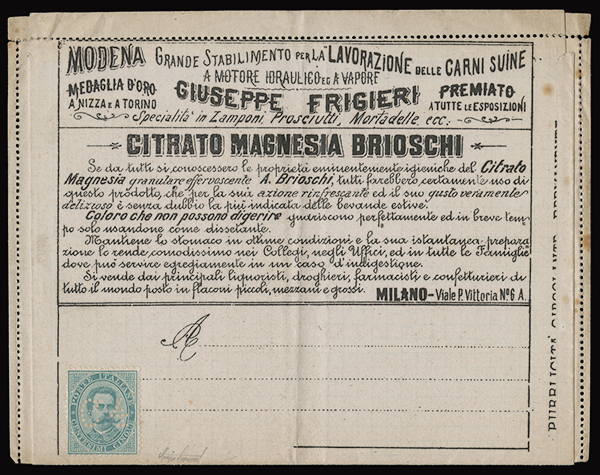 MODENA GRANDE STABILIMENTO PER LA LAVORAZIONE DELLE CARNI SUINE
A MOTORE IDRAULICO ED A VAPORE
MEDAGLIA D'ORO GIUSEPPE FRIGIERI PREMIATO
A NIZZA E A TORINO A TUTTE LE ESPOSIZIONI
Specialità in Zamponi, Prosciutti, Mortadelle, ecc.
CITRATO MAGNESIA BRIOSCHI
Se da tutti si conoscessero le proprietà eminentemente igieniche del Citrato
Magnesia granulare effervescente A. Brioschi, tutti farebbero certamente uso di
questo prodotto, che per la sua azione rinfrescante ed il suo gusto veramente
delizioso è senza dubbio la più indicata delle bevande estive.
Coloro che non possono digerire guariscono perfettamente ed in breve tem-
po solo usandone come dissetante.
Mantiene lo stomaco in ottime condizioni e la sua istantanea prepara
zione lo rende comodissimo nei Collegi, negli Uffici, ed in tutte le Famiglie
dove può servire egregiamente in un caso d'indigestione.
Si vende dai principali liquoristi, droghieri, farmacisti e confetturieri di
tutto il mondo posto in flaconi piccoli, mezzani e grossi. MILANO - Viale P. Vittoria No 6 A.
A
POSTE ITALIANE
CENTESIMI CINQUE
PUBBLICITÀ CIRCOLANTE